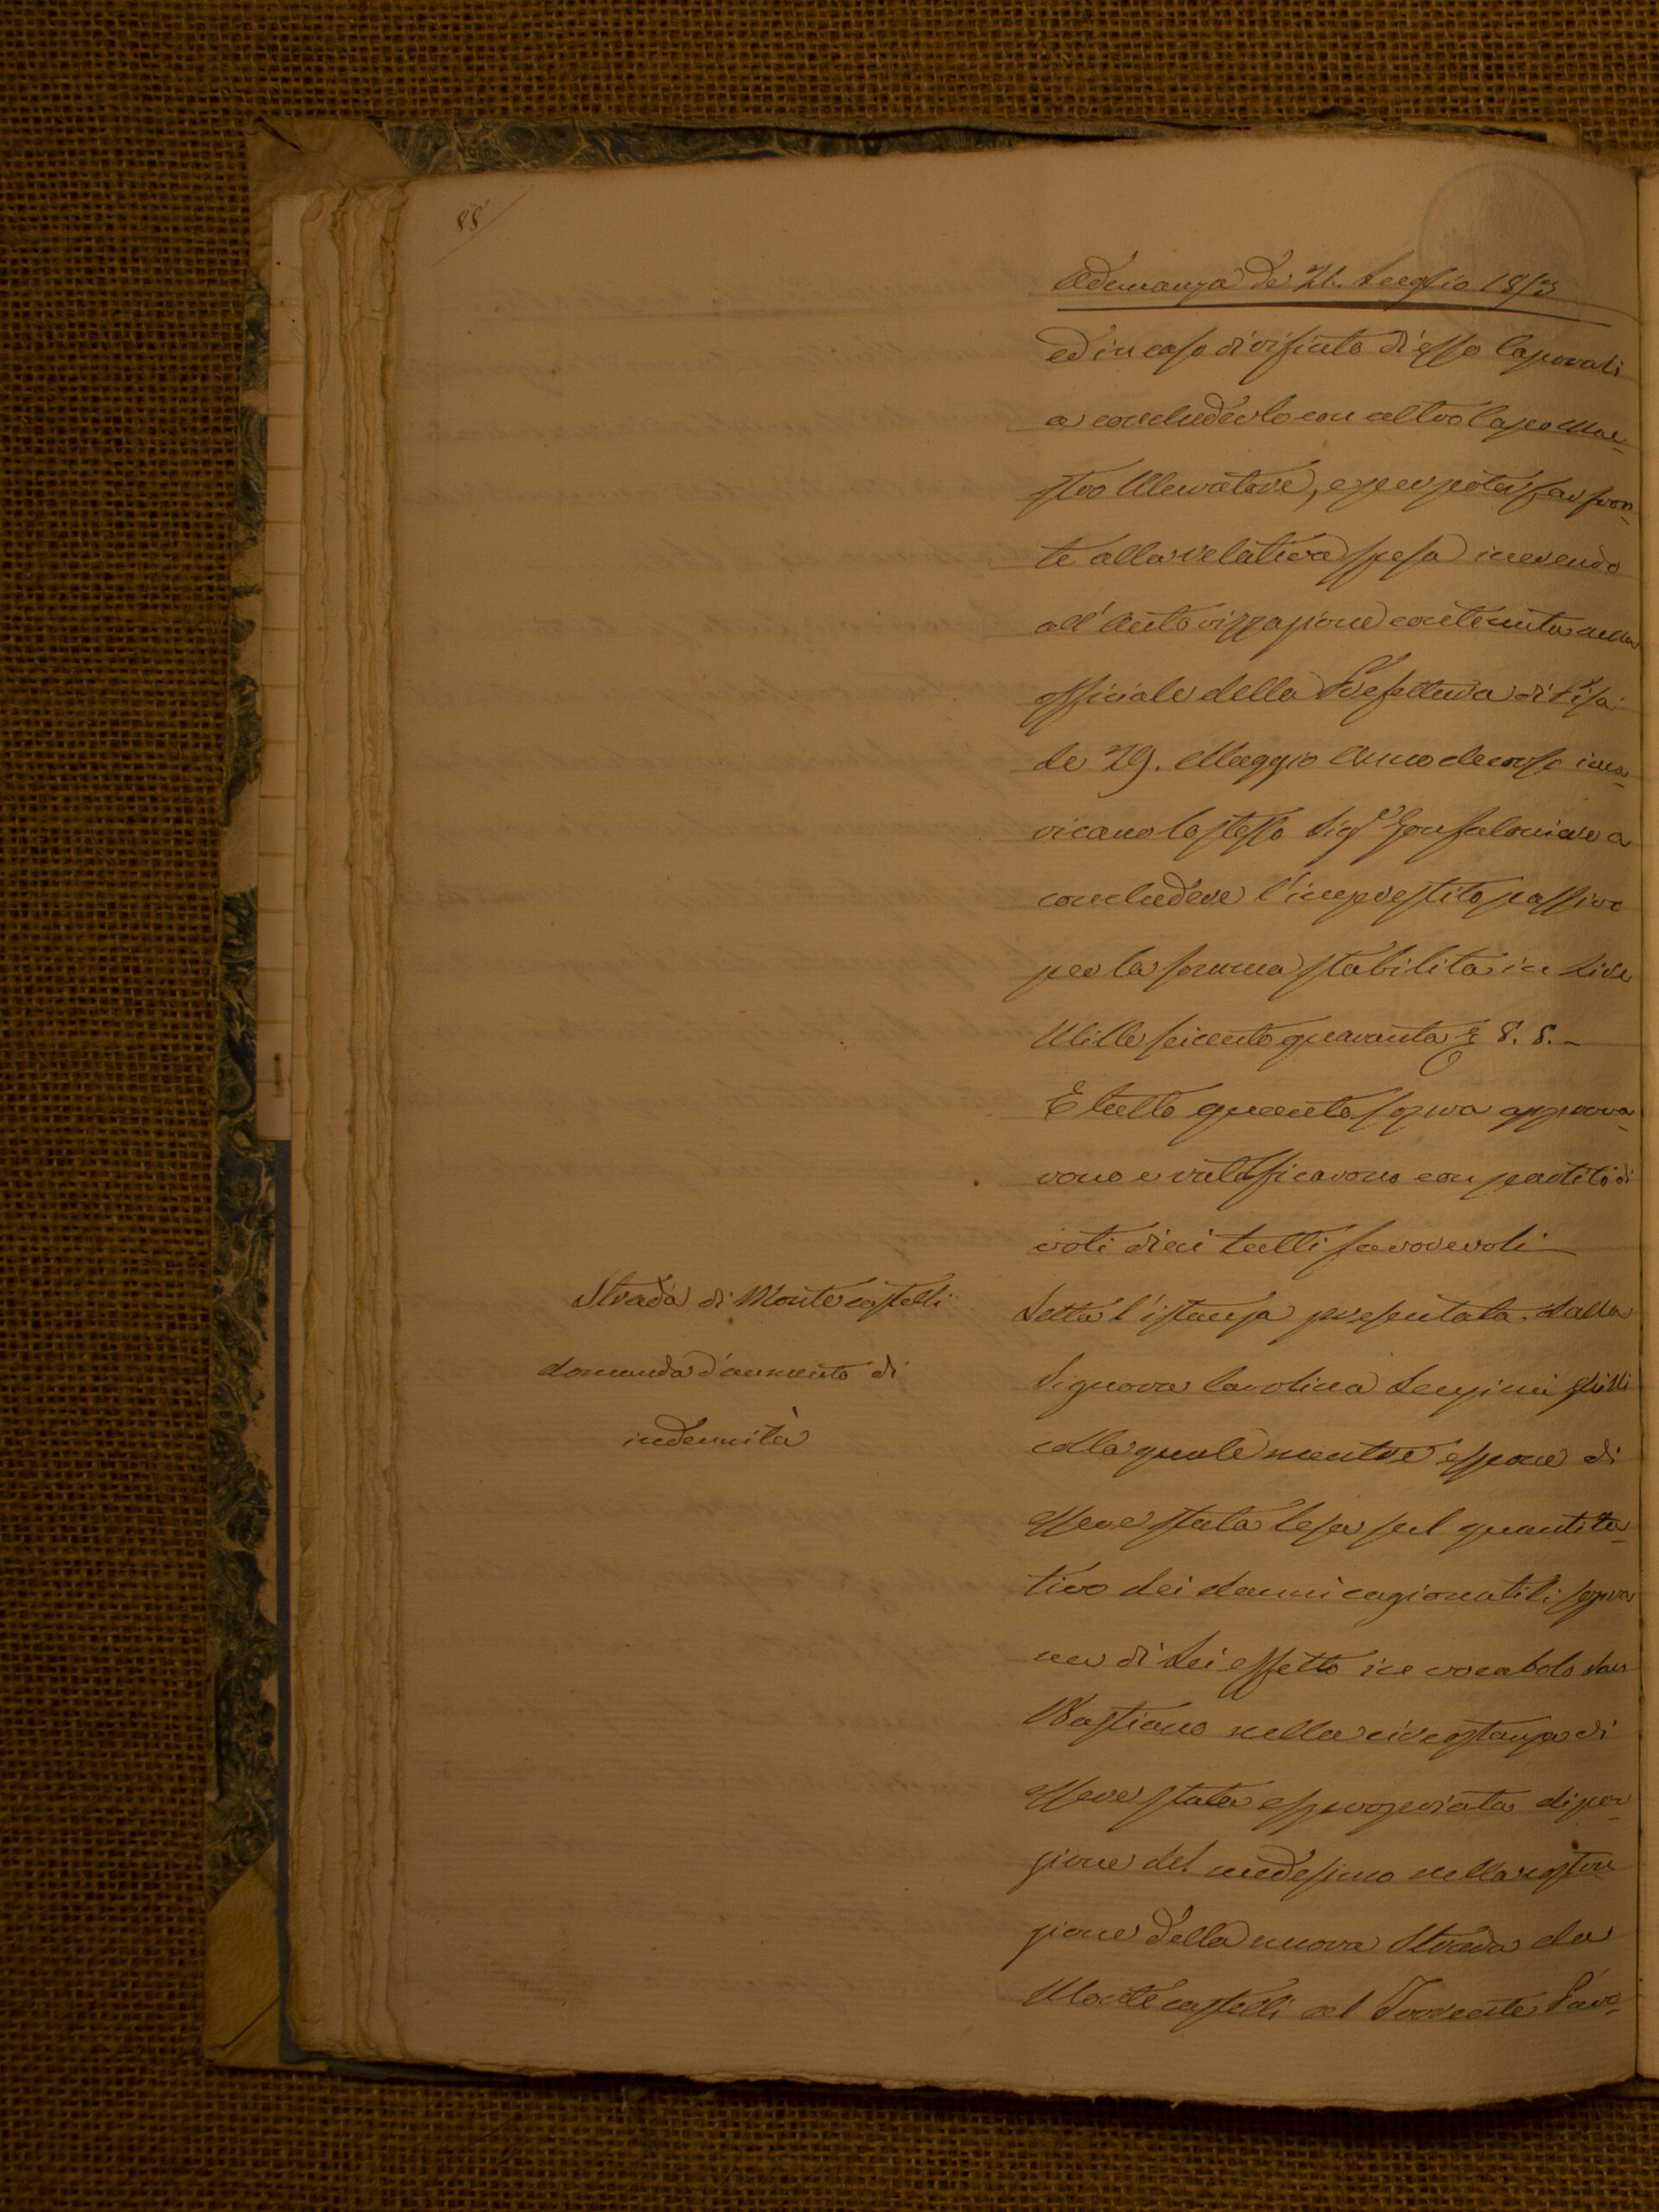 88
Adunanza de' 21. Luglio 1853
ed in caso di rifiuto di esso Caporali
a concluderlo con altro Capo Mae-
stro Muratore, e per poter far fron-
te alla relativa spesa inerendo
all'Autorizzazione contenuta nella
officiale della Prefettura di Pisa
de 29. Maggio Anno decorso inca-
ricano lo stesso Sig.r Gonfaloniere a
concludere l'imprestito passivo
per la somma stabilita in Lire
Mille seicento quaranta 8. 8. -
E tutto quanto sopra approva-
rono e ratificarono con partito di
voti dieci tutti favorevoli
Strada di Montecastelli
domanda d'aumento di
indennità
Letta l'istanza presentata dalla
Signora Carolina
colla quale mentre espone di
essere stata lesa sul quantita-
tivo dei danni cagionatili sopra
un di Lei effetto in vocabolo San
Bastiano nella circostanza di
essere stata espropriata di por-
zione del medesimo nella costru-
zione della nuova Strada da
Montecastelli al Torrente Pavo-